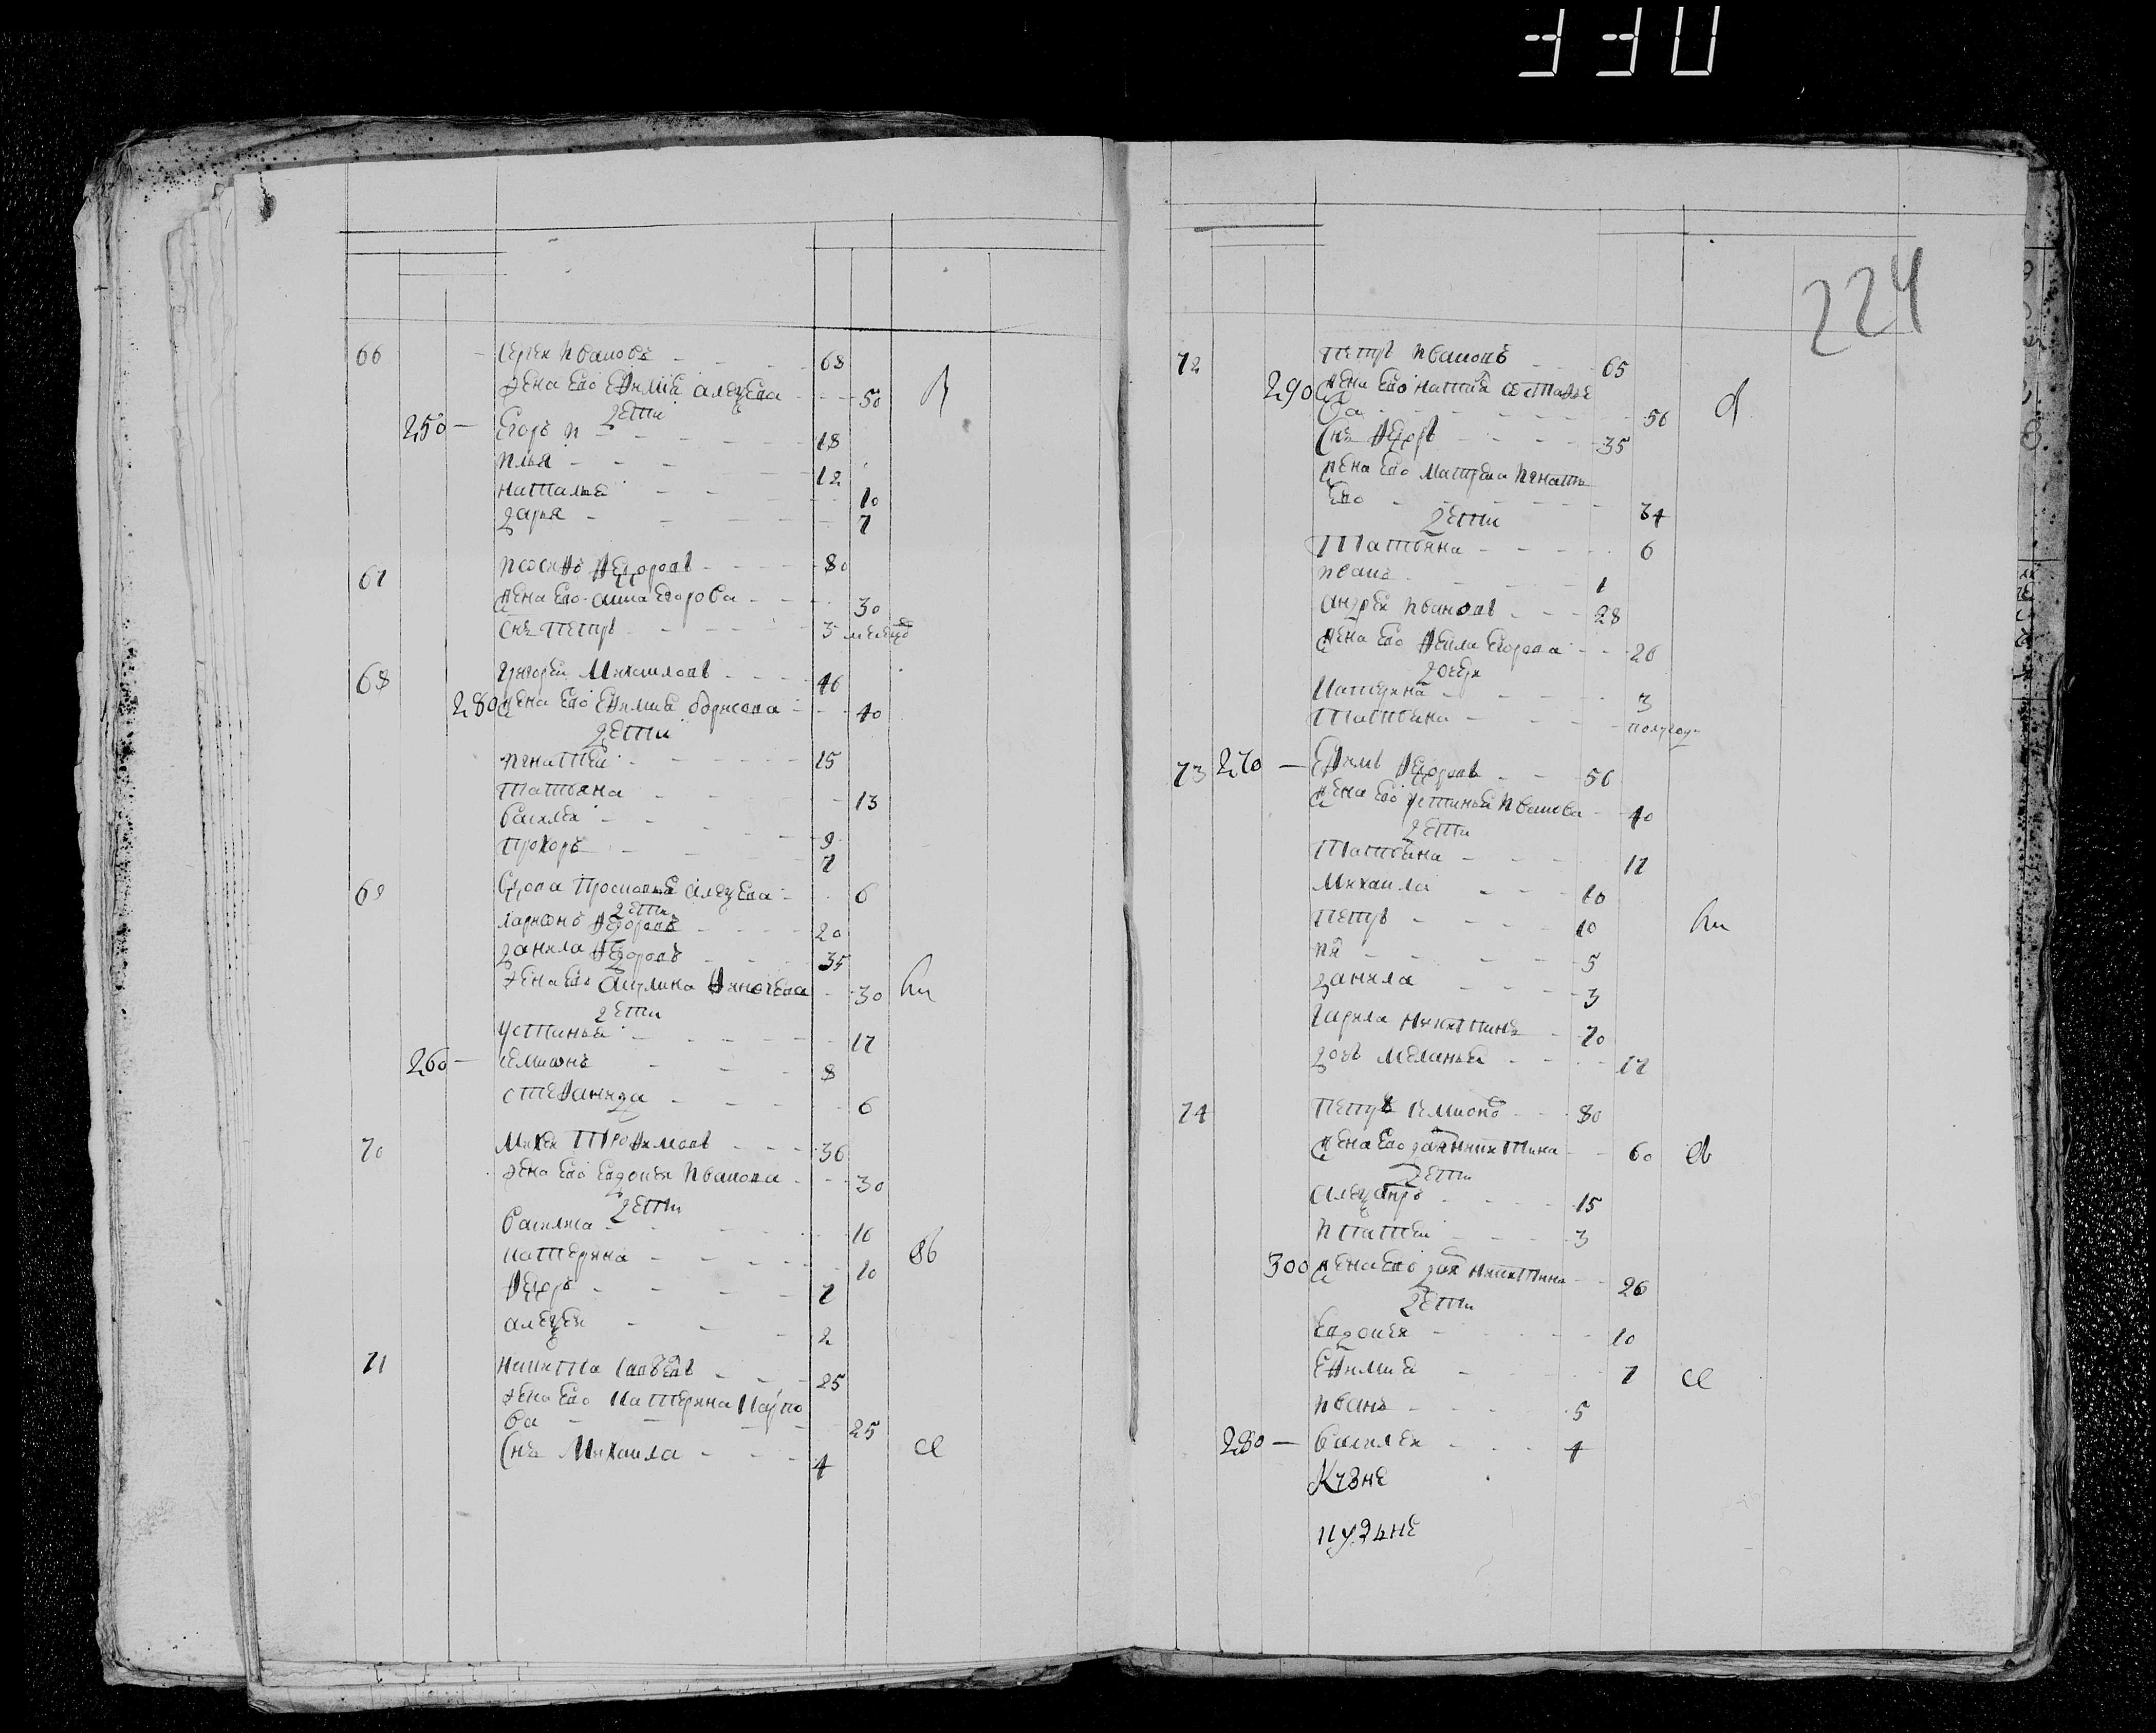 330
224
66 Сергей Ивановъ 68
Жена Его Ефимиа Алеѯеева 50
дети
250 — Егоръ 18
Илья 12
Наталья 10
Дарья 7
67 Иосифъ Федоровъ 80
Жена Его Анна Егорова 30
Снъ Петръ 3 месецо
68 Григореи Михаиловъ 46
280 Жена Его Ефимиа борисова 40
дети
Игнатеи 15
Татьяна 13
Василеи 9
Прохоръ 7
69 Вдова Просковья Алеѯеева 6
дети
Ларионъ Федоровъ 20
Данила Федоровъ 35
Жена Его Акулина 30
дети
Устинья 17
260 — Семионъ 8
Стефанида 6
70 Михеи Трофимовъ 36
Жена Его Евдокея Иванова 30
дети
Василиса 16
Катерина 10
Федоръ 7
Алеѯеи 2
71 Никита Савеевъ 25
Жена Его Катерина Карпо
ва 25
Снъ Михаила 4
72 Петръ Ивановъ 65
290 Жена Его
ва 56
Снъ Федоръ 35
Жена Его Матрена Игнать
Ева 34
дети
Татьяна 6
Иванъ 1
Андреи Ивановъ 28
Жена Его Фекла Егорова 26
дочери
Катерина 3
Татьяна полугоду
73 270 — Ефимъ Федоровъ 56
Жена Его Устинья Иванова 40
дети
Татьяна 17
Михаила 10
Петръ 10
5
Данила 3
Гаврила Никитинъ 70
дочь Меланья 17
74 Петръ Семионо 80
Жена Его Никитина 60
дети
Алеѯандръ 15
Игнатеи 3
300 Жена Его Никитина 26
дети
Евдокея 10
Ефимиа 7
Иванъ 5
280 — Василеи 4